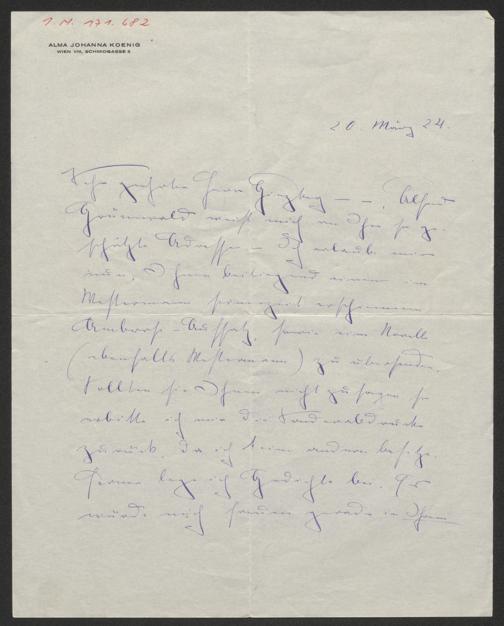 I.N. 171.682
ALMA JOHANNA KOENIG
WIEN VIII, SCHMIDGASSE 5
20. März 24.
Sehr geehrter Herr Ginzkey — —, Alfred
Grünewald weist mich an Ihre ge-
schätzte Adresse — Ich erlaube mir
nun, Ihnen beiliegend einen im
Westermann seinerzeit erschienenen
Aufsatz, sowie eine Novelle
(ebenfalls Westermann) zu übersenden.
Sollten sie Ihnen nicht zusagen so
erbitte ich mir die Sonderabdrucke
zurück, da ich keine andern besitze.
Ferner lege ich Gedichte bei. Es
würde mich freuen gerade in Ihrem